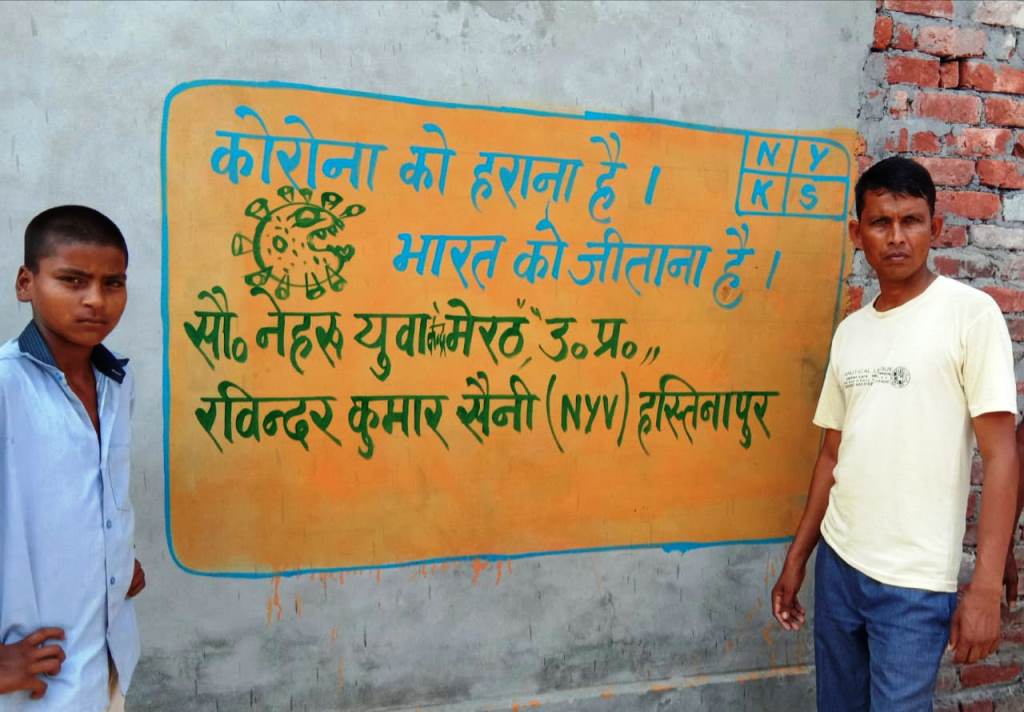 कोरोना को हराना है ।
N Y
K S
भारत को जीताना है ।
सौ० नेहरू युवा केन्द्र मेरठ, उ० प्र० ,,
रविन्दर कुमार सैनी (NYV) हस्तिनापुर